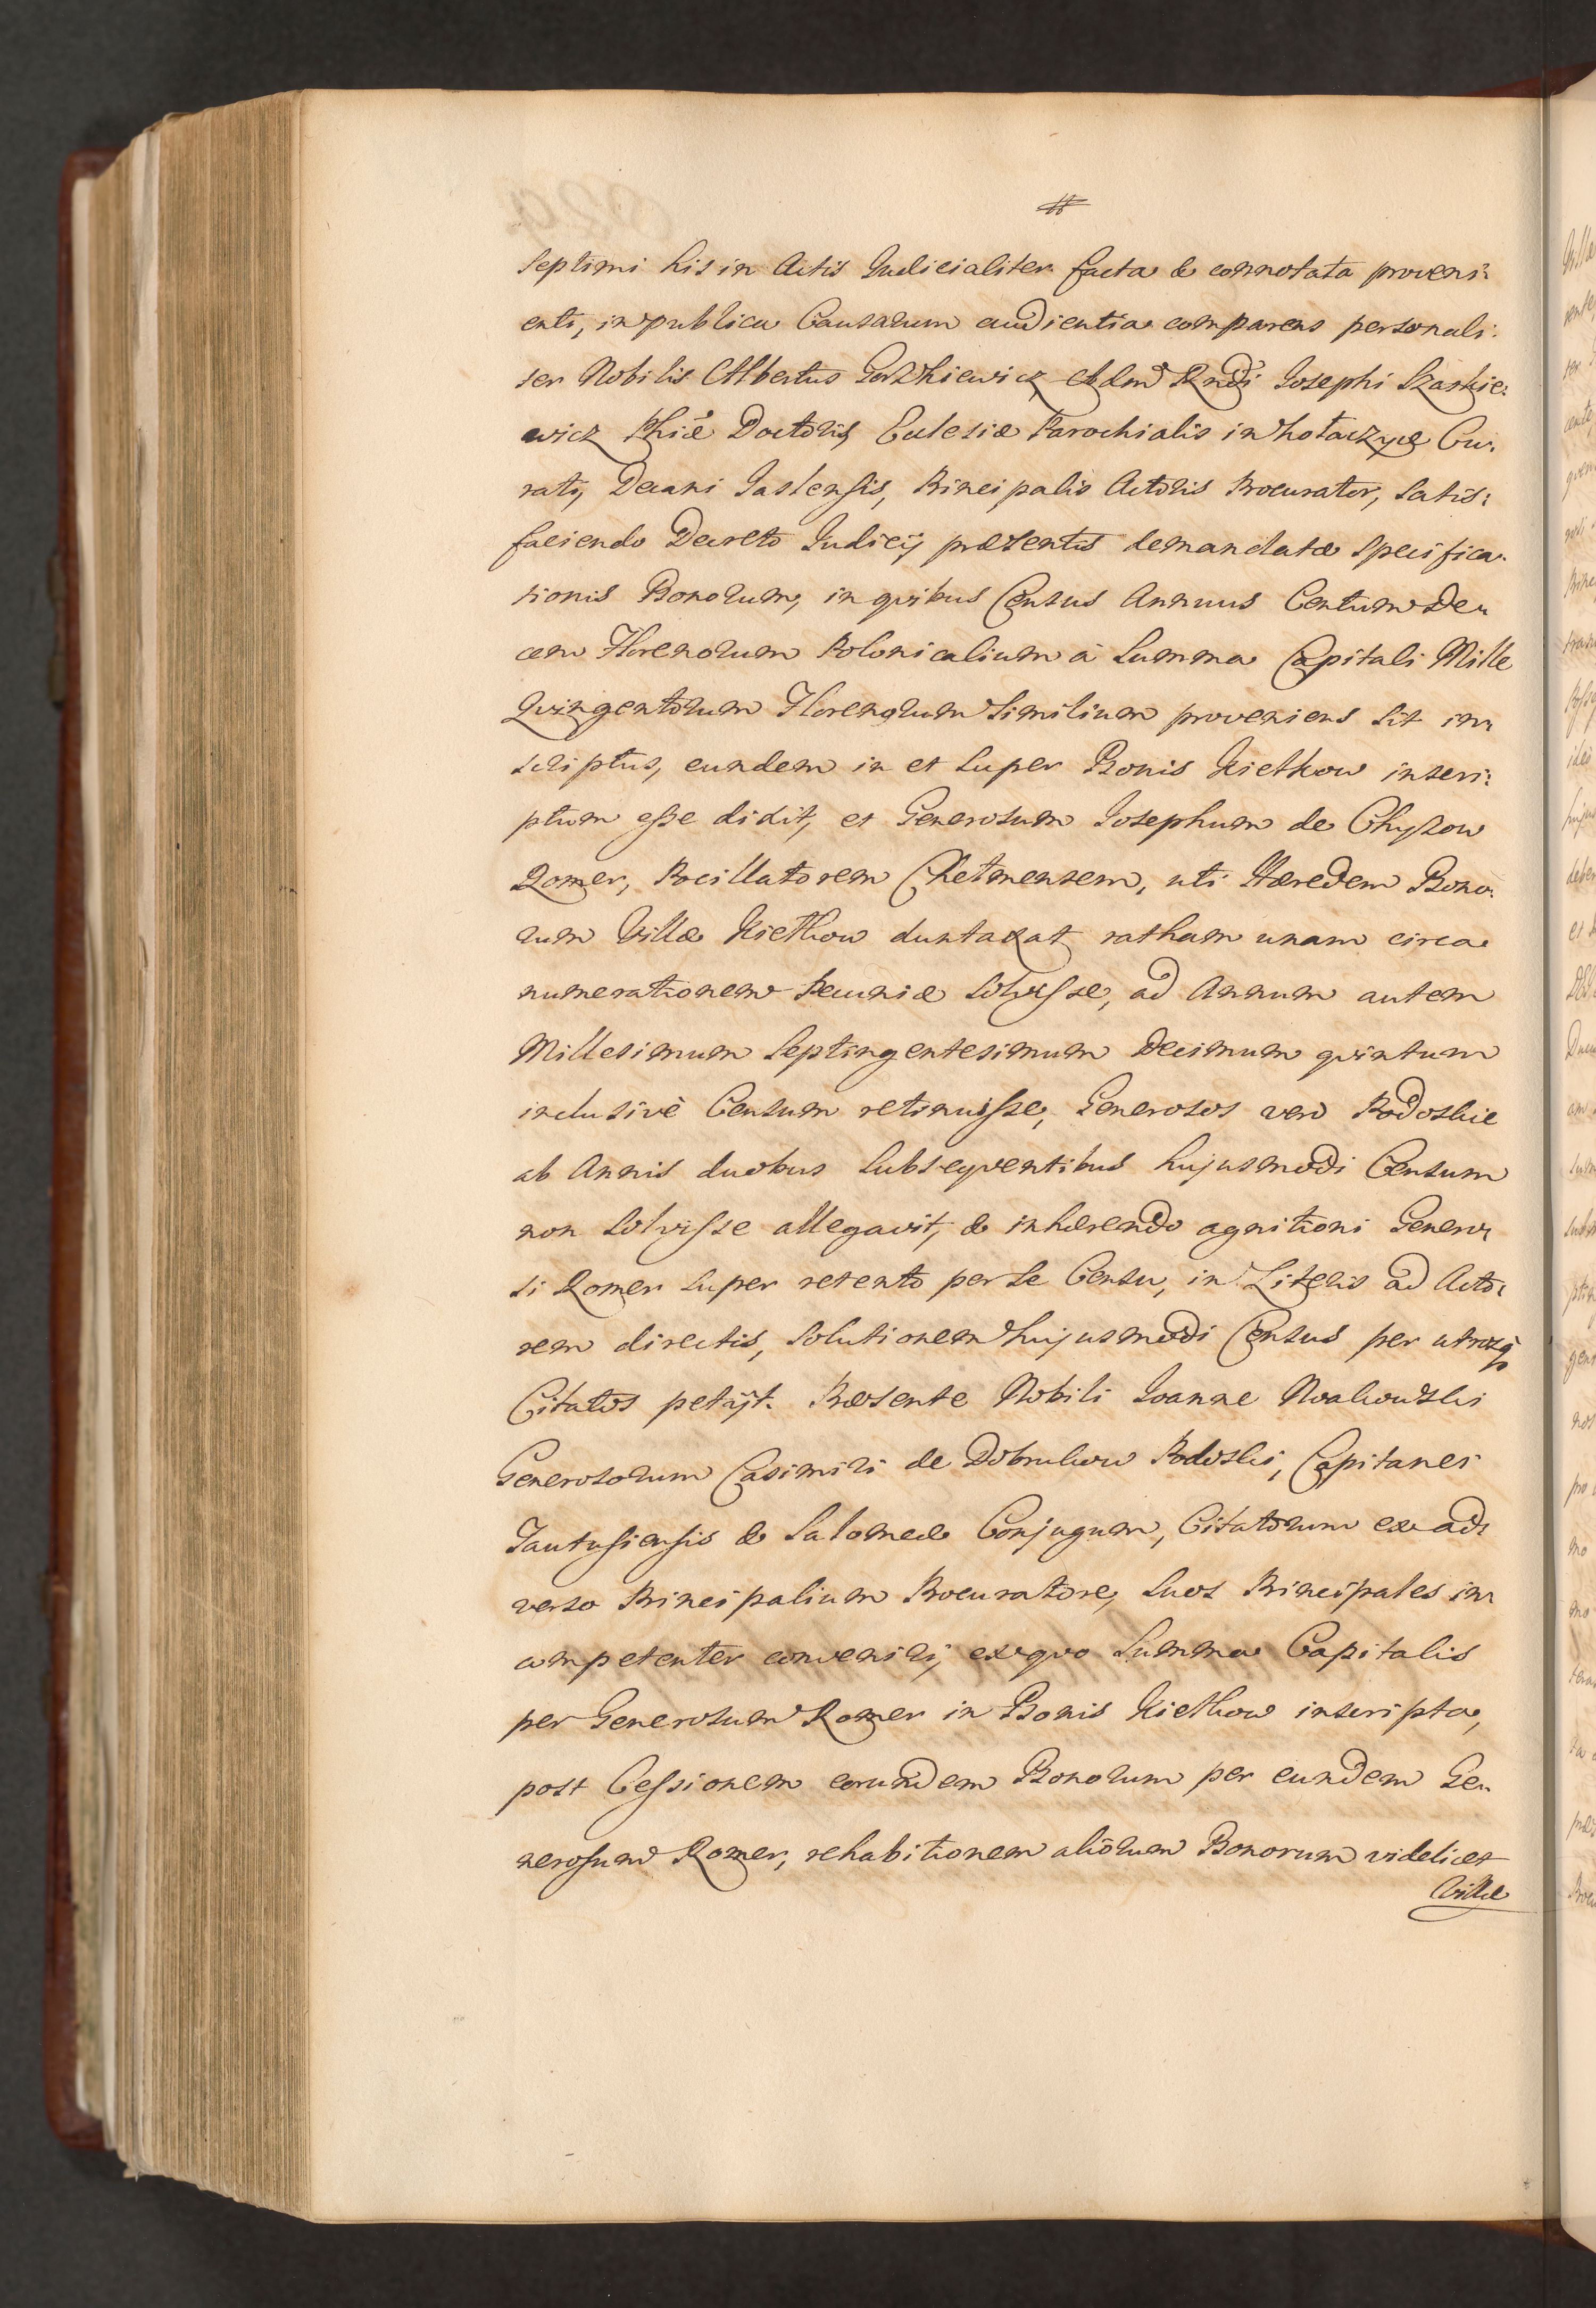 #
septimi his in Actis Judicialiter facta & connotata proveni:
enti, in publica Causarum audientia comparens personali:
ter Nobilis Albertus Gorzkiewicz Adm Rndi Josephi Szaskie:
wicz Phiæ Doctoris, Eclesiæ Parochialis in Kołaczyce Cu:
rati, Decani Jaslensis, Principalis Actoris Procurator, satis:
faciendo Decreto Judicij præsentis demandatæ specifica:
tionis Bonorum, in qvibus Census Annuus Centum De:
cem Florenorum Polonicalium à Summa Capitali Mille
Qvingentorum Florenorum Similium proveniens sit in:
scriptus, eundem in et super Bonis Kietkow inscri:
ptum esse dixit, et Generosum Josephum de Chyzow
Romer, Pocillatorem Chełmensem, uti Hæredem Bono:
rum Villæ Kietkow duntaxat ratham unam circa
numerationem Pecuniæ solvisse, ad Annum autem
Millesimum Septingentesimum Decimum qvintum
inclusivè Censum retinuisse, Generosos vero Rodoskie
ab Annis duobus subseqventibus hujusmodi Censum
non solvisse allegavit, & inhærendo agnitioni Genero:
si Romer super retento per se Censu, in Literis ad Acto:
rem directis, solutionem hujusmodi Census per utrosq
Citatos petijt. Præsente Nobili Joanne Noakowski
Generosorum Casimiri de Dobrukow Podoski, Capitanei
& Salomeæ Conjugum, Citatorum ex ad:
verso Principalium Procuratore, suos Principales in:
competenter conveniri, ex qvo Summa Capitalis
per Generosum Romer in Bonis Kietkow inscripta,
post Cessionem eorundem Bonorum per eundem Ge:
nerosum Romer, rehabitionem aliorum Bonorum videlicet
Villæ